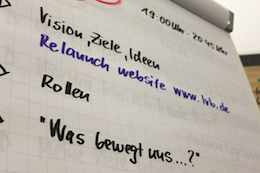 19:00 Uhr - 20:45 Uhr
Vision, Ziele, Ideen
Relaunch website www.lvb.de
Rollen
"Was bewegt uns...?"